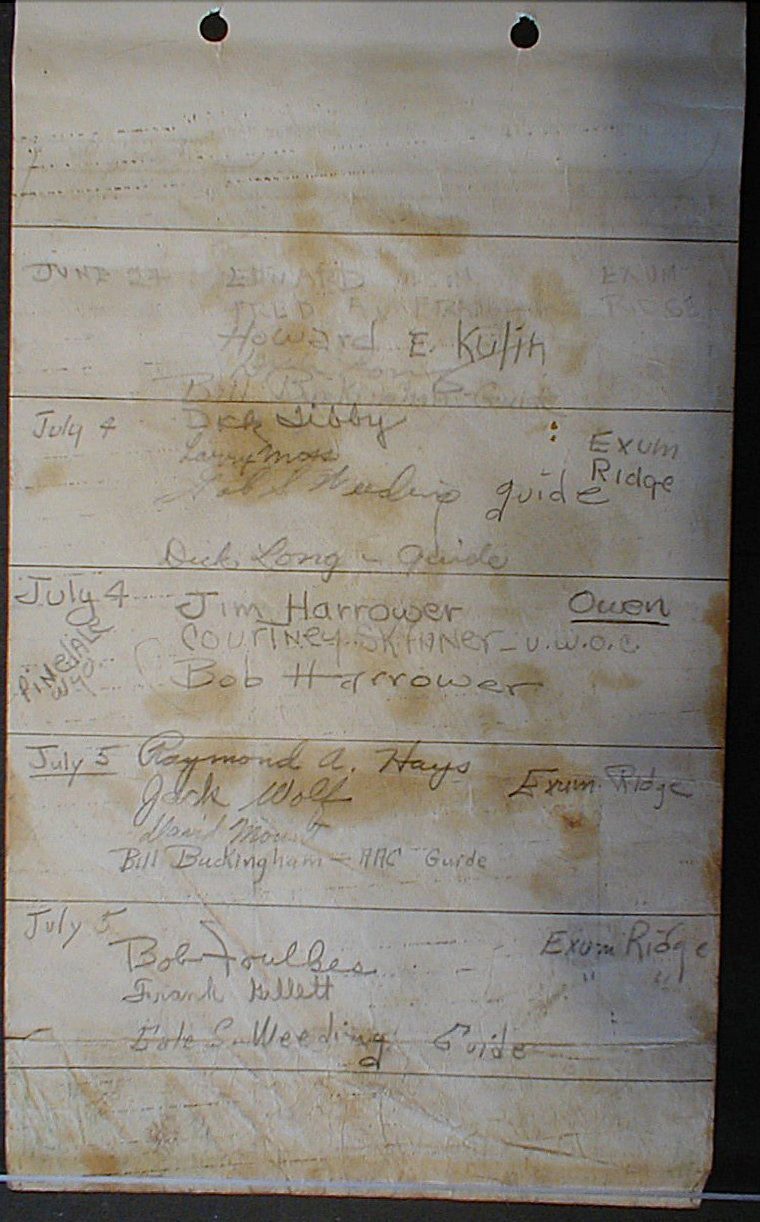 JUNE 27 EDWARD EXUM
FRED RIDGE
Howard E. Kulin
Bill Buckingham - Guide
July 4 Dick Libby Exum
Larry Moss Ridge
Weeding guide
Dick Long - Guide
July 4 Jim Harrower Owen
COURTNEY SKINNER - U.W.O.C.
PINEDALE
WYO
Bob Harrower
July 5 Raymond A. Hays
Jack Wolf Exum Ridge
David Mount
Bill Buckingham - AAC Guide
July 5
Bob Foulkes Exum Ridge
Frank Gillett " "
S. Weeding Guide